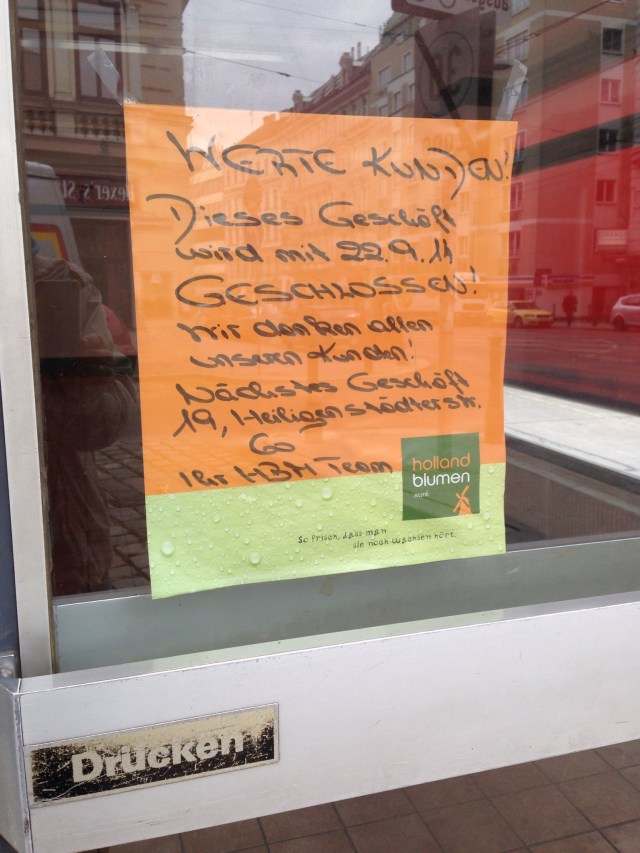 WERTE KUNDEN!
Dieses Geschäft
wird mit 22.9.14
GESCHLOSSEN!
Wir danken allen
unseren Kunden!
Nächstes Geschäft
19, Heiligenstädterstr.
60
Ihr HBM Team
holland
blumen
markt
So frisch, dass man
sie noch wachsen hört.
Drücken